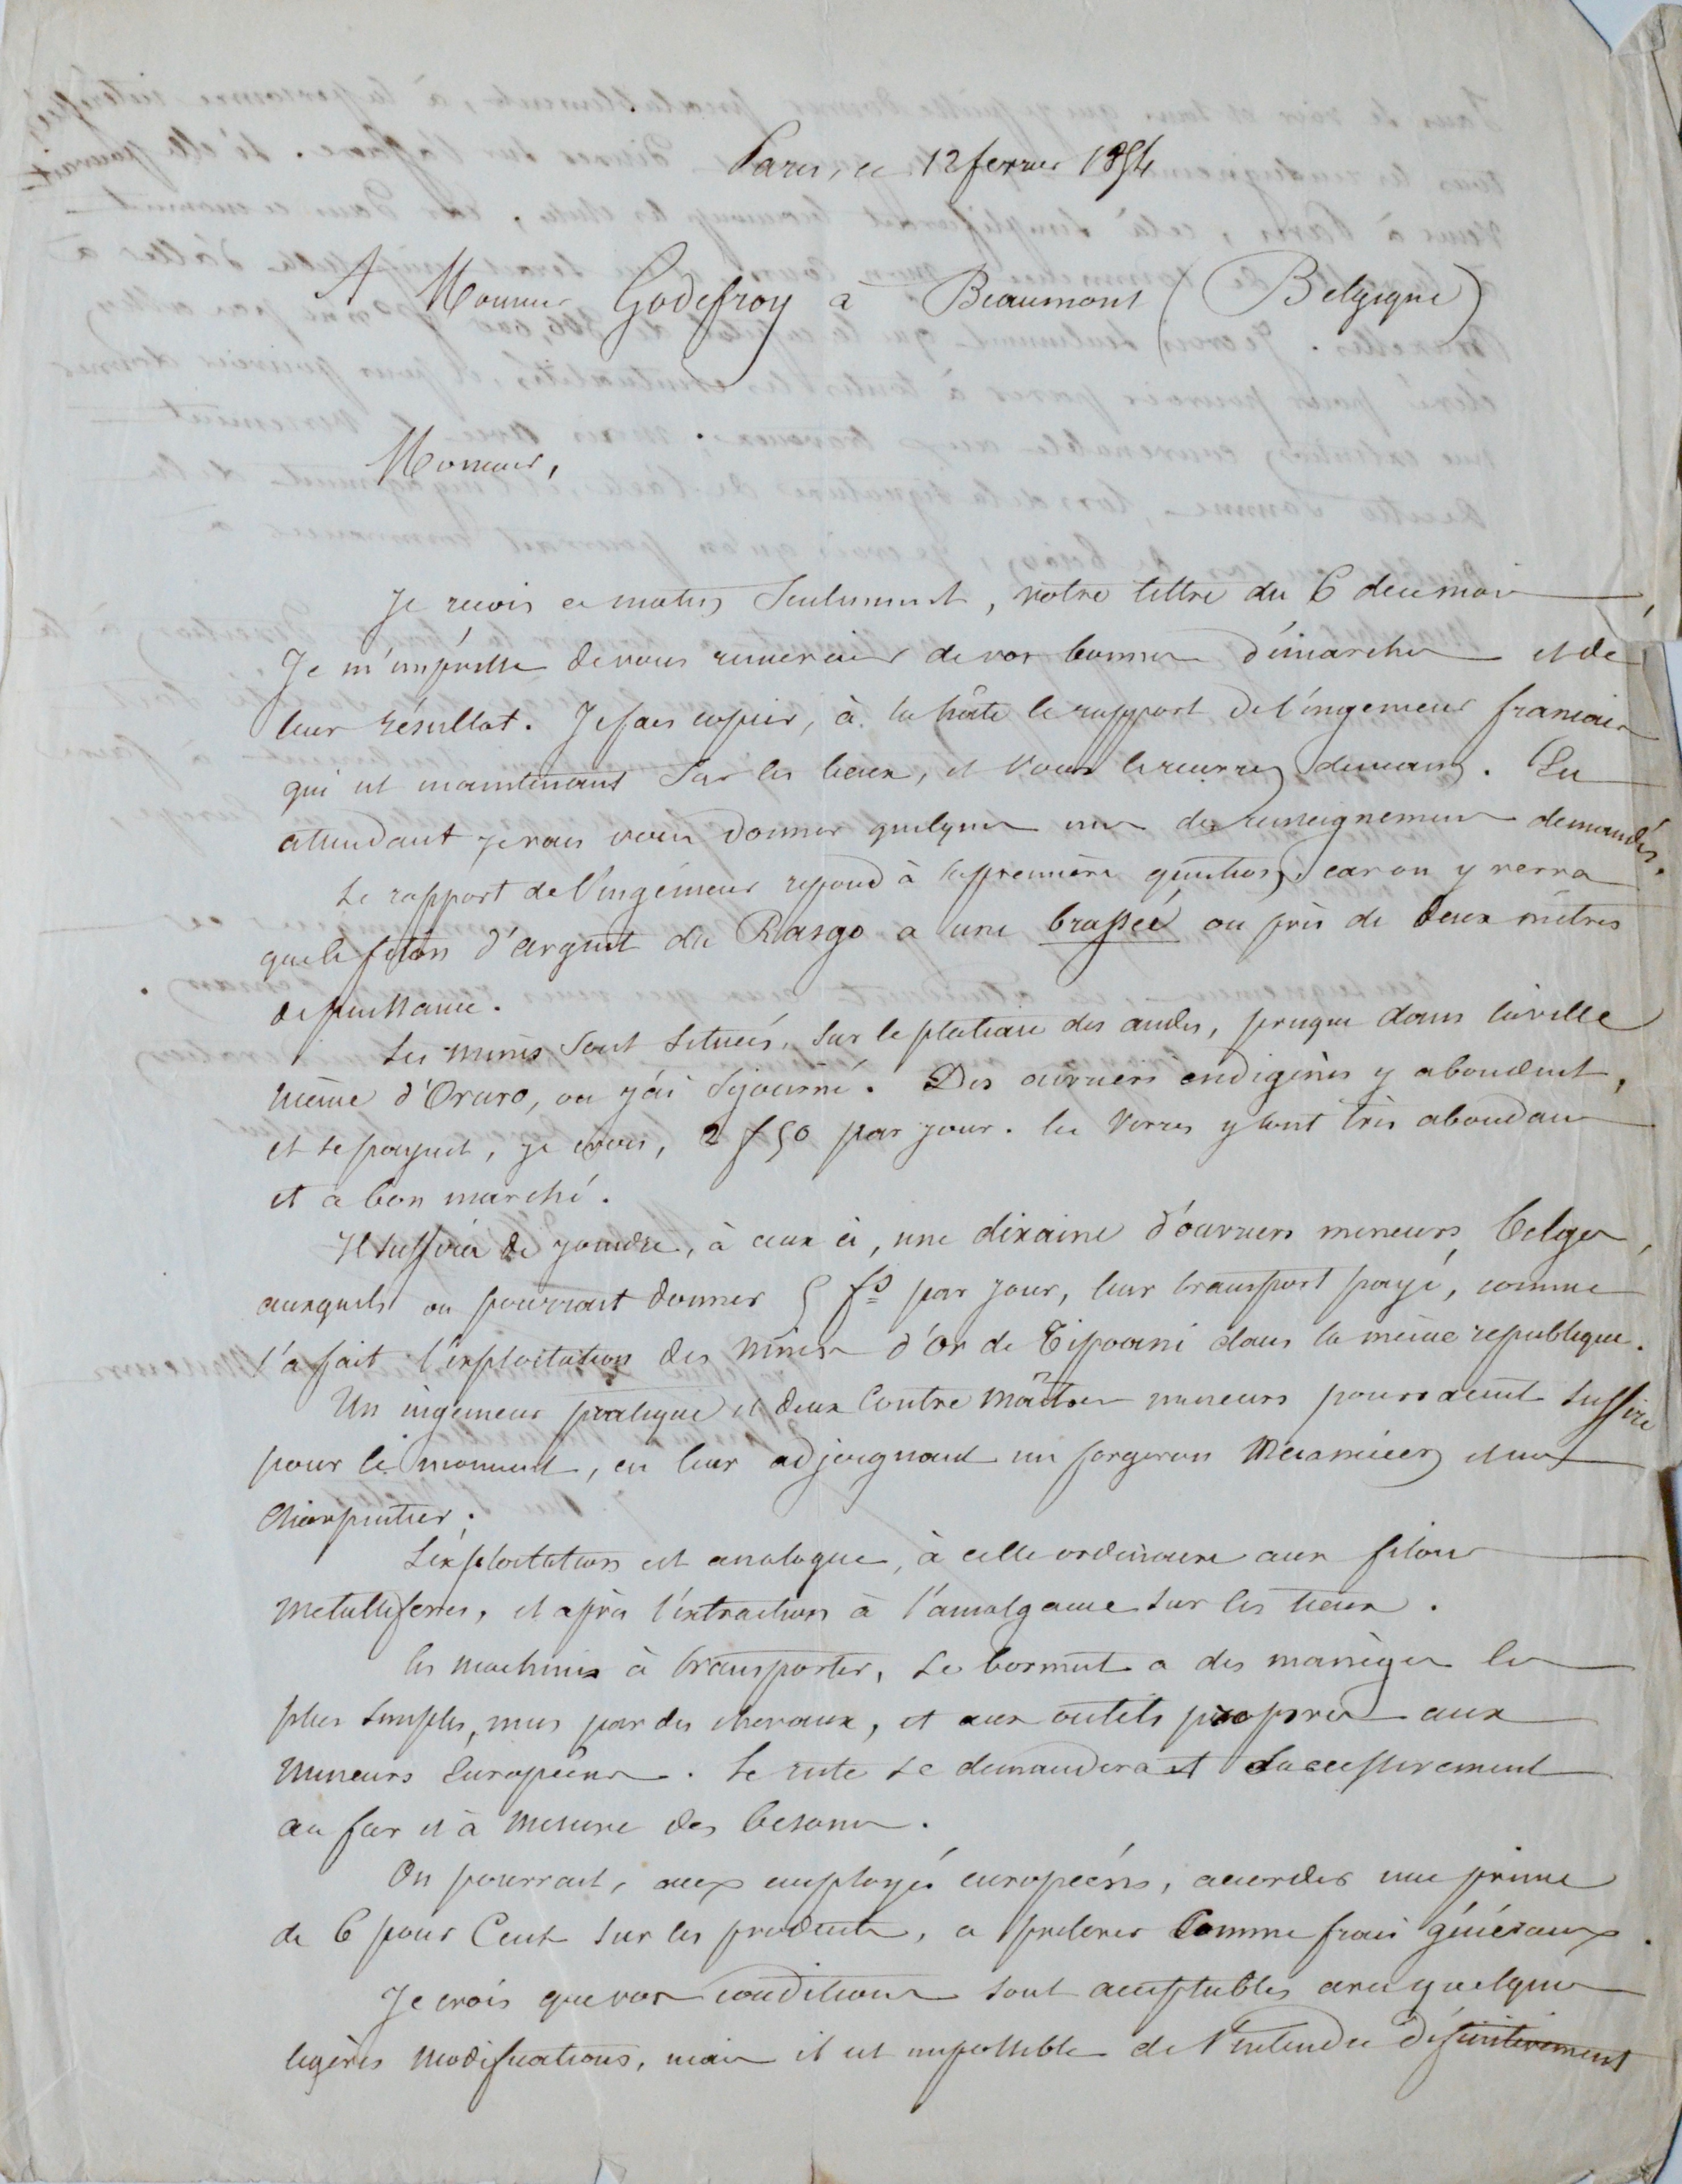 Paris, ce 12 fevrier 1854
A Monsieur Godefroy à Beaumont (Belgique)
Monsieur,
Je reçois ce matin seulement, votre lettre du 6 de ce mois,
Je m'empresse de vous remercier de vos bonnes démarches et de
leur résultat. Je fais copier, à la hâte le rapport de l'ingenieur francais
qui est maintenant sur les lieux, et vous le recevrez demain. En
attendant je vais vous donner quelques uns des renseignements demandés.
Le rapport de l'ingénieur repond à la première question, car on y verra
que le filon d'argent du Rasgo a une brassée ou près de deux mètres
de puissance.
Les mines sont situées, sur le plateau des andes, presque dans la ville
même d'Oruro, ou j'ai séjourné. Des ouvriers indigènes y abondent,
et se payent, je crois, 2 f 50 par jour. les vivres y sont très abondans
et a bon marché.
Il suffira de joindre, à ceux ci, une dixaine d'ouvriers mineurs, belges,
auxquels on pourrait donner 5 fs par jour, leur transport payé, comme
l'a fait l'exploitation des mines d'or de Tipoani dans la même republique.
Un ingenieur pratique et deux contre maîtres mineurs pourraient suffire
pour le moment, en leur adjoignant un forgeron mecanicien et un
charpentier.
L'exploitation est analogue, à celle ordinaire aux filons
metalliferes, et après l'extraction à l'amalgame sur les lieux.
les machines à transporter, se bornent a des manèges les
plus simples, mus par des chevaux, et aux outils propres aux
mineurs Européens. Le reste se demanderait successivement
au fur et à mesure des besoins.
On pourrait, aux employés européens, accorder une prime
de 6 pour Cent sur les produits, a prelever comme frais généraux.
Je crois que vos conditions sont acceptables avec quelques
legères modifications, mais il est impossible de s'entendre définitivement